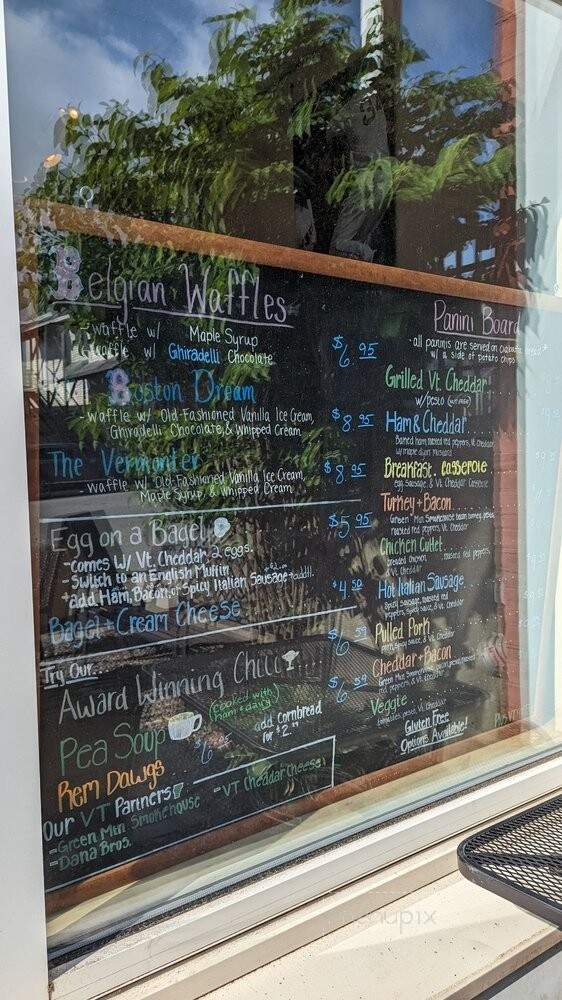 Belgian Waffles
- waffle w/ Maple Syrup
- waffle w/ Ghiradelli Chocolate
$6.95
Boston Dream
- waffle w/ Old-Fashioned Vanilla Ice Cream,
Ghiradelli Chocolate, & Whipped Cream
$8.95
The Vermonter
- Waffle w/ Old-Fashioned Vanilla Ice Cream,
Maple Syrup, & Whipped Cream
$8.95
Egg on a Bagel
$5.95
- comes w/ Vt. Cheddar, 2 eggs.
- switch to an English Muffin
+ add Ham, Bacon, or Spicy Italian Sausage
Bagel + Cream Cheese
$4.50
Try Our...
Award Winning Chili
$6.59
Pea Soup
(cooked with ham + dairy)
add cornbread
for $2.
$6
Rem Dawgs
$6.59
Our VT Partners
- Green Mtn. Smokehouse
- VT Cheddar Cheese
- Dana Bros.
Panini Board
- all paninis are served on
w/ a side of potato chips
Grilled Vt. Cheddar
w/ pesto
Ham & Cheddar
roasted red peppers, Vt. Cheddar
w/ maple mustard
Breakfast Casserole
Egg, Sausage, & Vt. Cheddar Casserole
Turkey + Bacon
Green Mtn. Smokehouse bacon, turkey,
roasted red peppers, Vt. Cheddar
Chicken Cutlet
breaded chicken, roasted red peppers,
Vt. Cheddar
Hot Italian Sausage
spicy sausage, roasted red
peppers, & Vt. Cheddar
Pulled Pork
& Vt. Cheddar
Cheddar + Bacon
Green Mtn. Smokehouse bacon, roasted
red peppers, & Vt. Cheddar
Veggie
Vt. Cheddar
Gluten Free
Options Available!